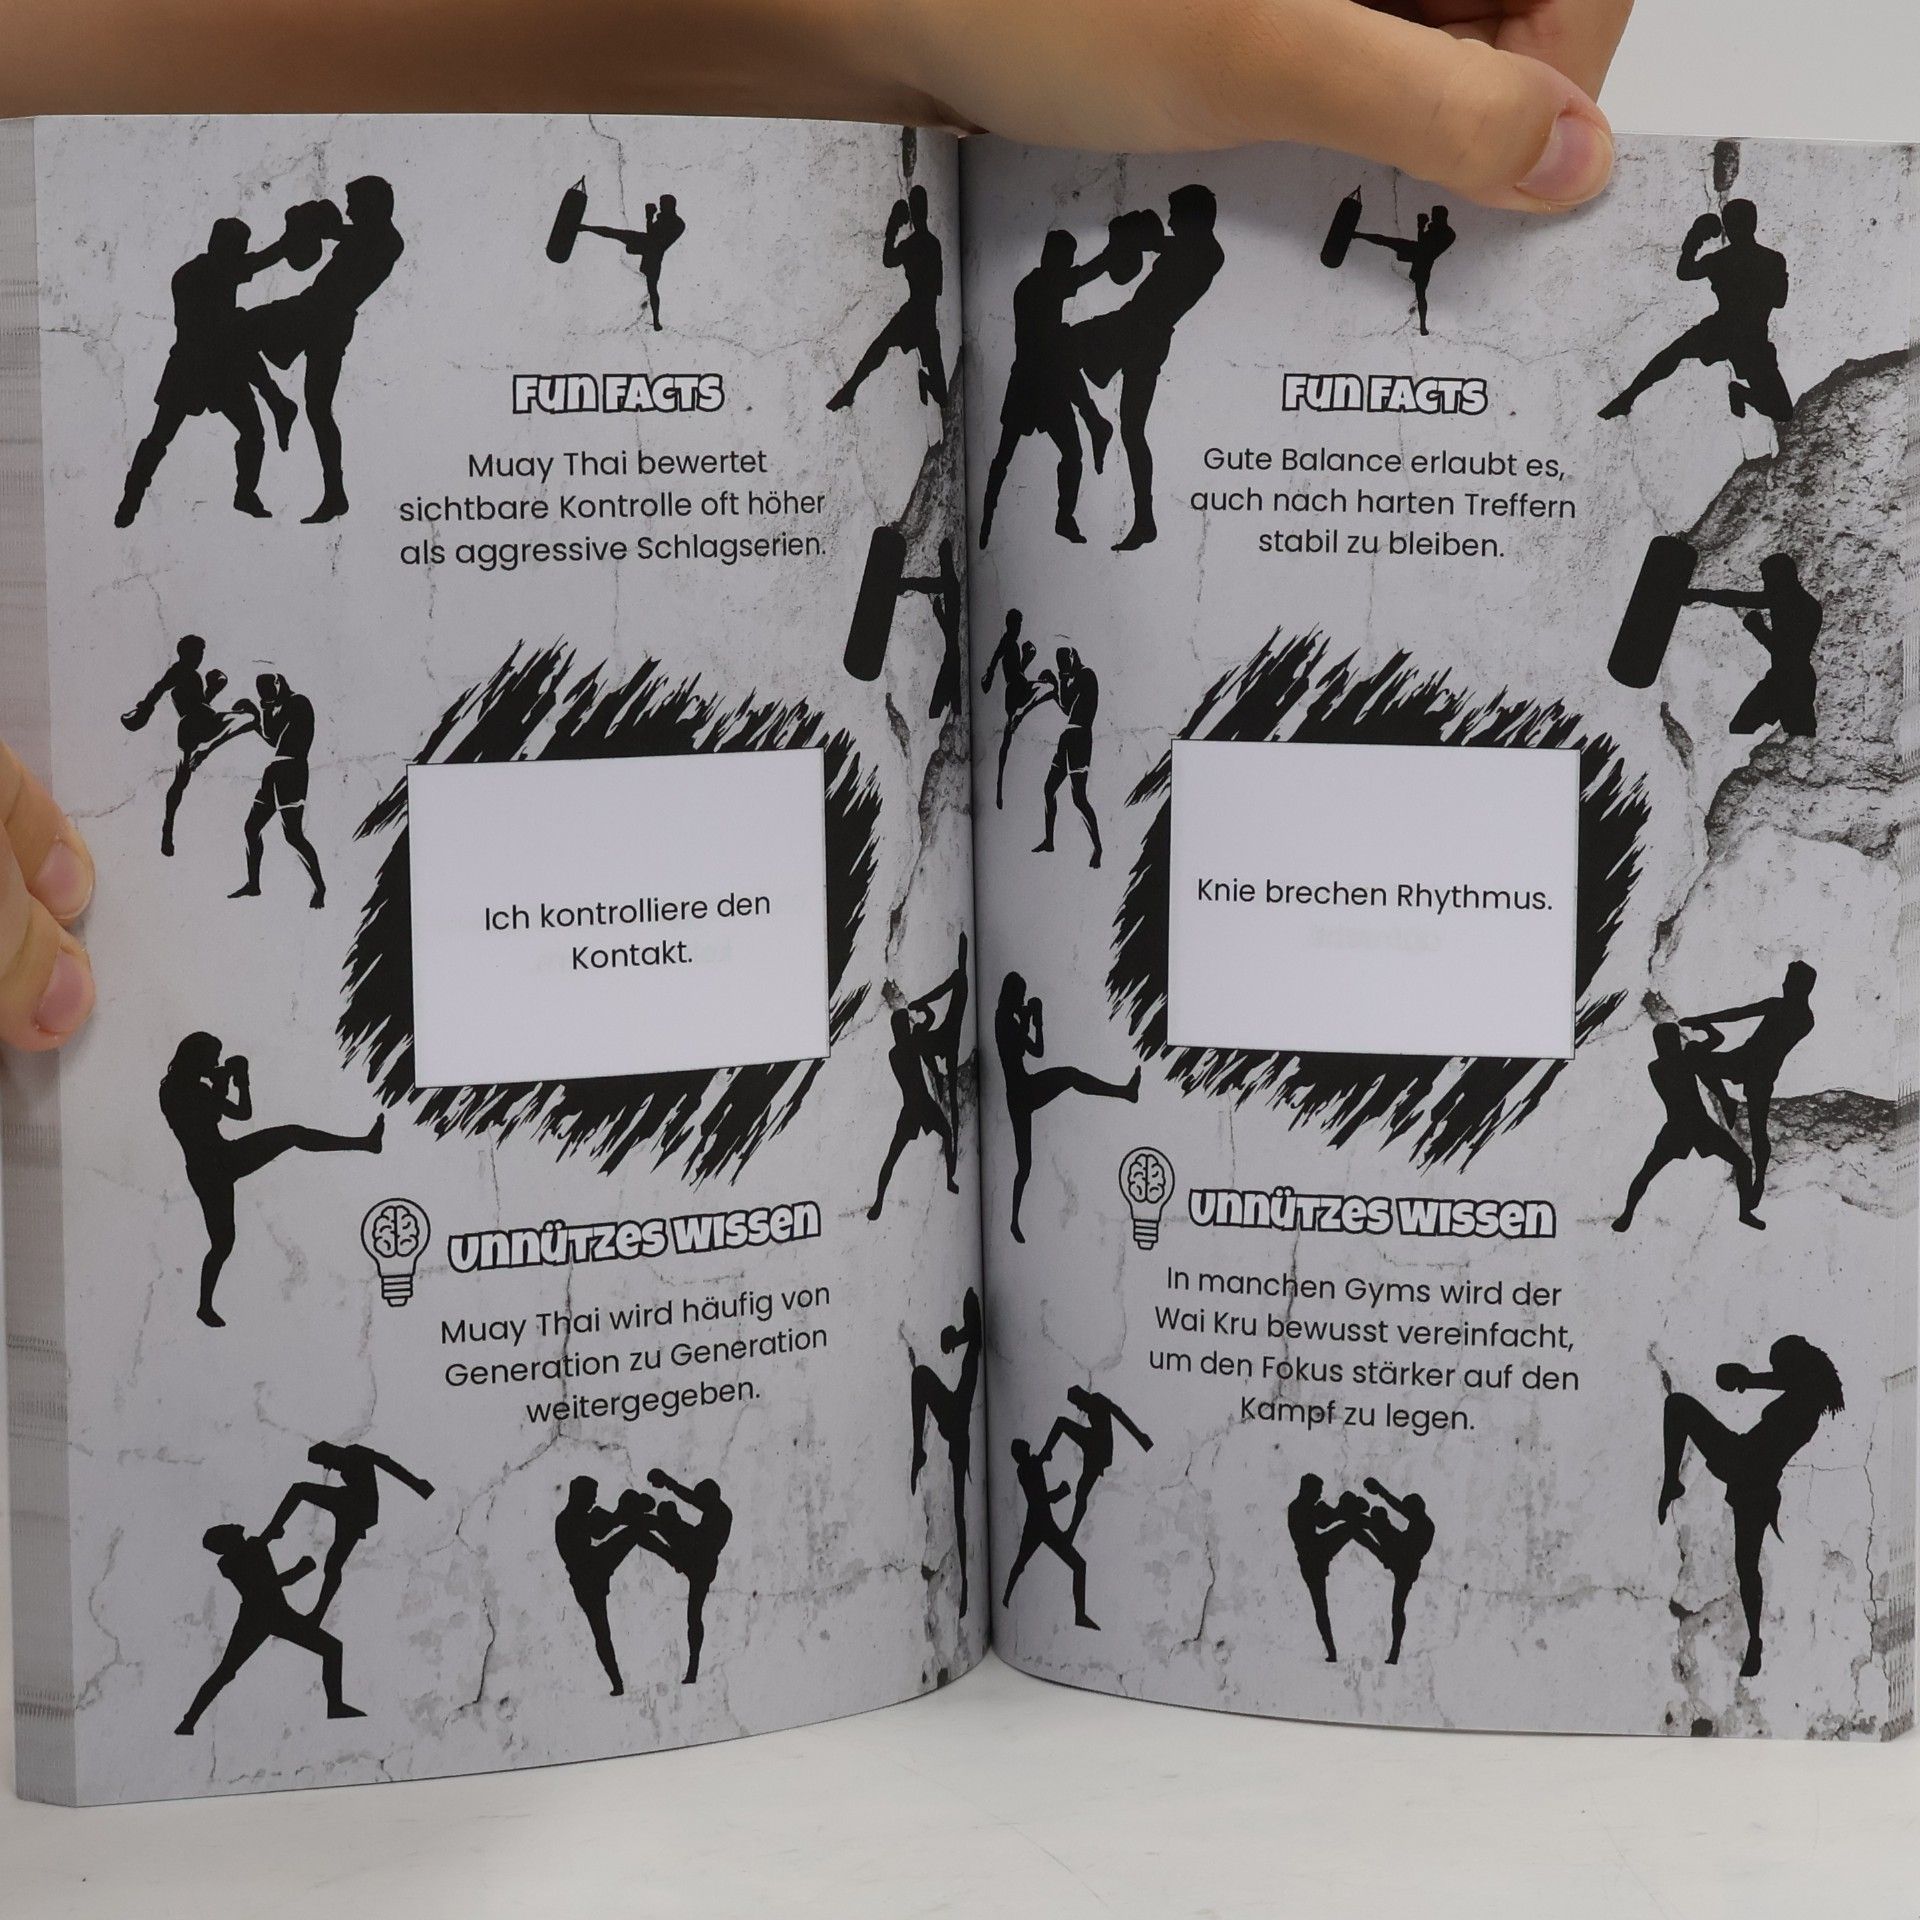 FUN FACTS
Muay Thai bewertet
sichtbare Kontrolle oft höher
als aggressive Schlagserien.
Ich kontrolliere den
Kontakt.
UNNÜTZES WISSEN
Muay Thai wird häufig von
Generation zu Generation
weitergegeben.
FUN FACTS
Gute Balance erlaubt es,
auch nach harten Treffern
stabil zu bleiben.
Knie brechen Rhythmus.
UNNÜTZES WISSEN
In manchen Gyms wird der
Wai Kru bewusst vereinfacht,
um den Fokus stärker auf den
Kampf zu legen.